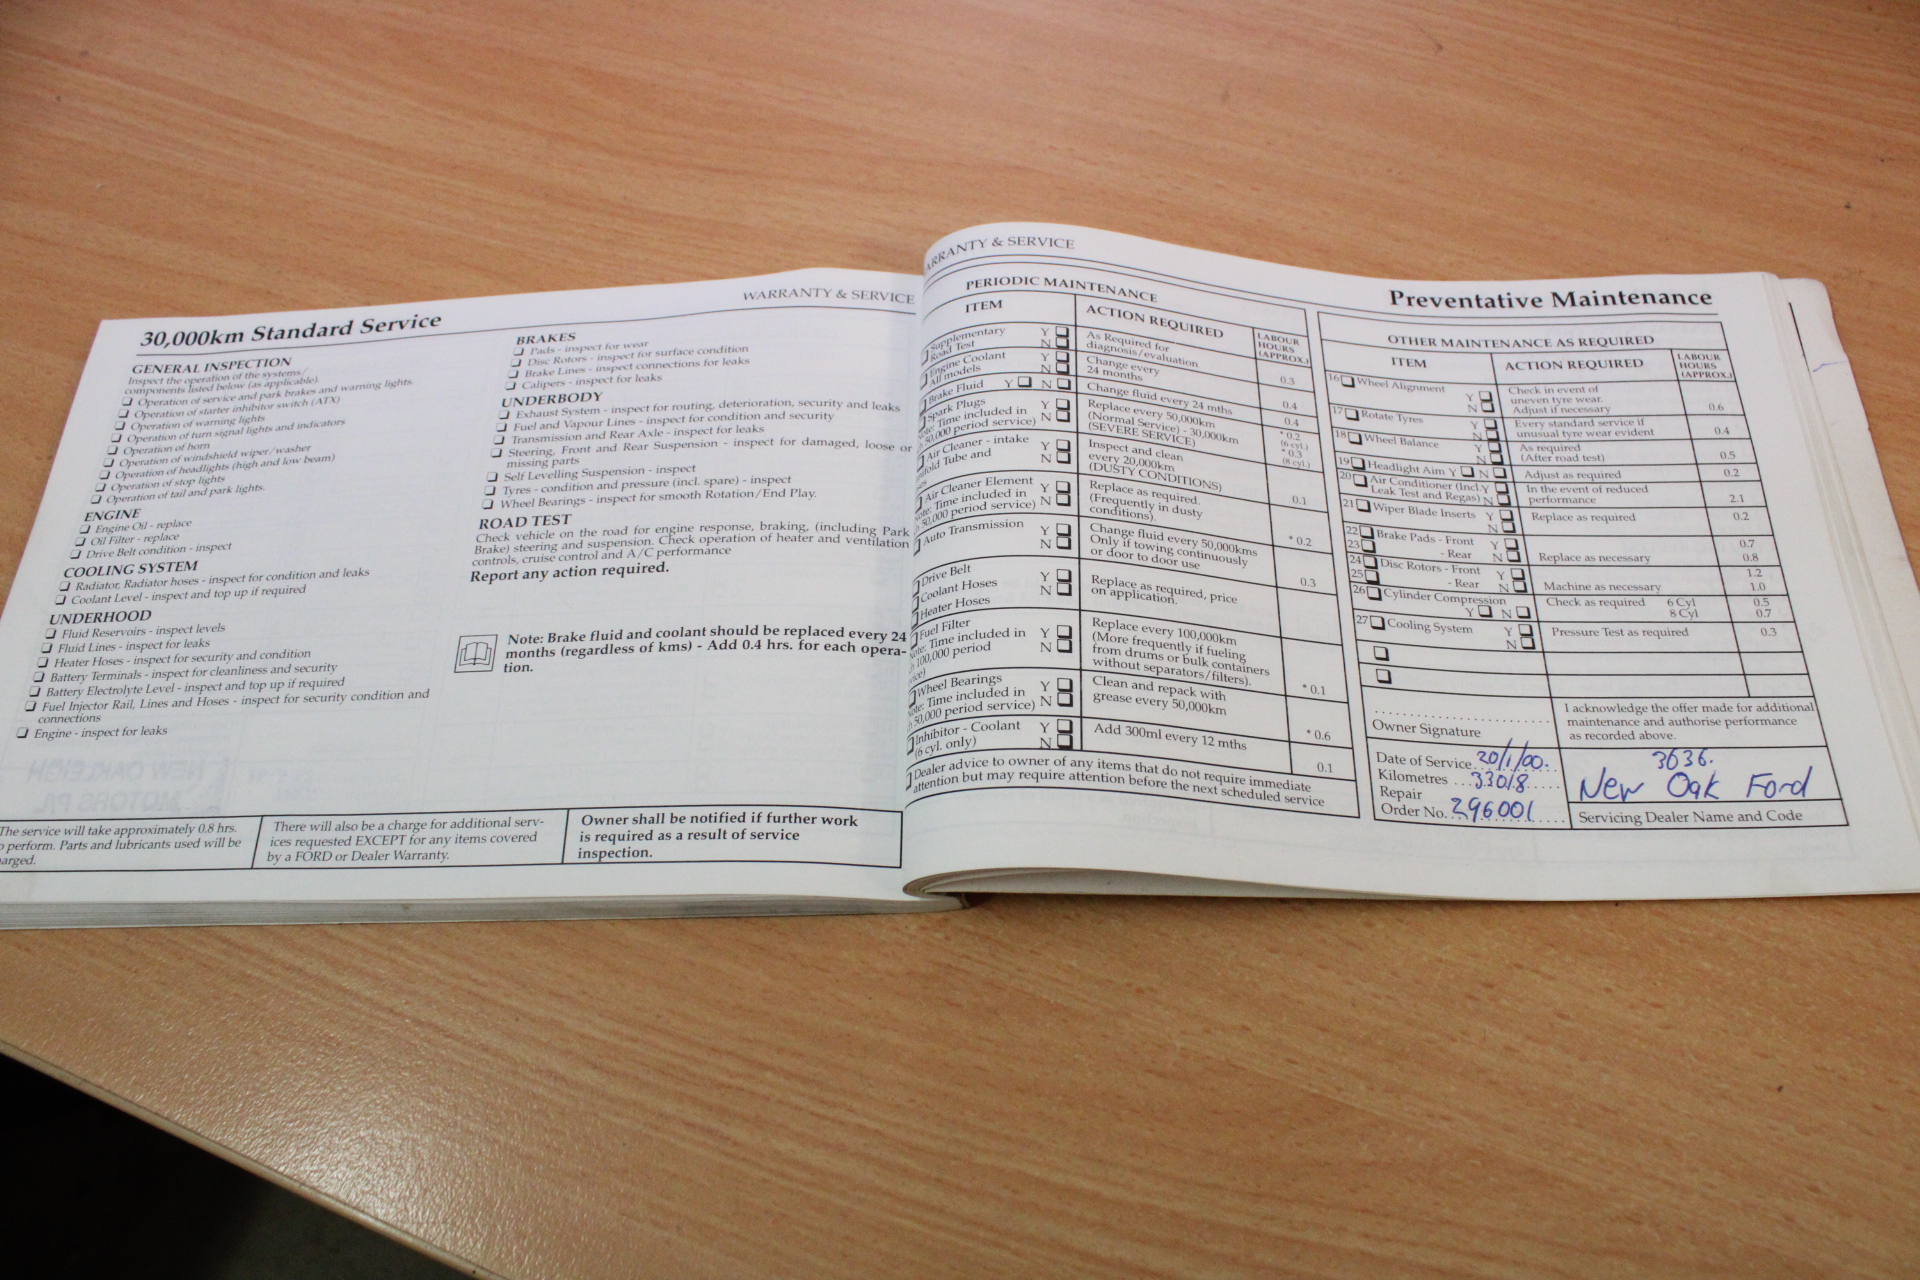 WARRANTY & SERVICE
30,000km Standard Service
GENERAL INSPECTION
Inspect the operation of the systems/
components listed below (as applicable).
Operation of service and park brakes and warning lights.
Operation of starter inhibitor switch (ATX)
Operation of warning lights
Operation of turn signal lights and indicators
Operation of horn
Operation of windshield wiper/washer
Operation of headlights (high and low beam)
Operation of stop lights
Operation of tail and park lights.
ENGINE
Engine Oil - replace
Oil Filter - replace
Drive Belt condition - inspect
COOLING SYSTEM
Radiator, Radiator hoses - inspect for condition and leaks
Coolant Level - inspect and top up if required
UNDERHOOD
Fluid Reservoirs - inspect levels
Fluid Lines - inspect for leaks
Heater Hoses - inspect for security and condition
Battery Terminals - inspect for cleanliness and security
Battery Electrolyte Level - inspect and top up if required
Fuel Injector Rail, Lines and Hoses - inspect for security condition and
connections
Engine - inspect for leaks
BRAKES
Pads - inspect for wear
Disc Rotors - inspect for surface condition
Brake Lines - inspect connections for leaks
Calipers - inspect for leaks
UNDERBODY
Exhaust System - inspect for routing, deterioration, security and leaks
Fuel and Vapour Lines - inspect for condition and security
Transmission and Rear Axle - inspect for leaks
Steering, Front and Rear Suspension - inspect for damaged, loose or
missing parts
Self Levelling Suspension - inspect
Tyres - condition and pressure (incl. spare) - inspect
Wheel Bearings - inspect for smooth Rotation/End Play.
ROAD TEST
Check vehicle on the road for engine response, braking, (including Park
Brake) steering and suspension. Check operation of heater and ventilation
controls, cruise control and A/C performance
Report any action required.
Note: Brake fluid and coolant should be replaced every 24
months (regardless of kms) - Add 0.4 hrs. for each opera-
tion.
The service will take approximately 0.8 hrs.
o perform. Parts and lubricants used will be
arged.
There will also be a charge for additional serv-
ices requested EXCEPT for any items covered
by a FORD or Dealer Warranty.
Owner shall be notified if further work
is required as a result of service
inspection.
ARRANTY & SERVICE
Preventative Maintenance
PERIODIC MAINTENANCE
ITEM ACTION REQUIRED LABOUR HOURS (APPROX.)
Supplementary Road Test Y N As Required for diagnosis/evaluation
Engine Coolant All models Y N Change every 24 months 0.3
Brake Fluid Y N Change fluid every 24 mths 0.4
Spark Plugs Y N Replace every 50,000km 0.4
ote: Time included in (Normal Service) - 30,000km * 0.2 (6 cyl.)
50,000 period service) (SEVERE SERVICE) * 0.3 (8 cyl.)
Air Cleaner - intake Y N Inspect and clean
fold Tube and every 20,000km
(DUSTY CONDITIONS) 0.1
Air Cleaner Element Y N Replace as required.
ote: Time included in (Frequently in dusty
50,000 period service) conditions). * 0.2
Auto Transmission Y N Change fluid every 50,000kms
Only if towing continuously
or door to door use 0.3
Drive Belt Y N
Coolant Hoses Replace as required, price
Heater Hoses on application.
Fuel Filter Y N Replace every 100,000km
ote: Time included in (More frequently if fueling
100,000 period from drums or bulk containers
ice) without separators/filters). * 0.1
Wheel Bearings Y N Clean and repack with
ote: Time included in grease every 50,000km
50,000 period service) * 0.6
Inhibitor - Coolant Y N Add 300ml every 12 mths
(6 cyl. only) 0.1
Dealer advice to owner of any items that do not require immediate
attention but may require attention before the next scheduled service
OTHER MAINTENANCE AS REQUIRED
ITEM ACTION REQUIRED LABOUR HOURS (APPROX.)
16 Wheel Alignment Y N Check in event of
uneven tyre wear.
Adjust if necessary 0.6
17 Rotate Tyres Y N Every standard service if
unusual tyre wear evident 0.4
18 Wheel Balance Y N As required
(After road test) 0.5
19 Headlight Aim Y N Adjust as required 0.2
20 Air Conditioner (Incl. Y In the event of reduced
Leak Test and Regas) N performance 2.1
21 Wiper Blade Inserts Y N Replace as required 0.2
22 Brake Pads - Front Y 0.7
23 - Rear N Replace as necessary 0.8
24 Disc Rotors - Front Y 1.2
25 - Rear N Machine as necessary 1.0
26 Cylinder Compression Check as required 6 Cyl 0.5
Y N 8 Cyl 0.7
27 Cooling System Y N Pressure Test as required 0.3
Owner Signature
I acknowledge the offer made for additional
maintenance and authorise performance
as recorded above.
Date of Service 20/1/00.
Kilometres 33018
Repair
Order No. 296001
3636.
New Oak Ford
Servicing Dealer Name and Code